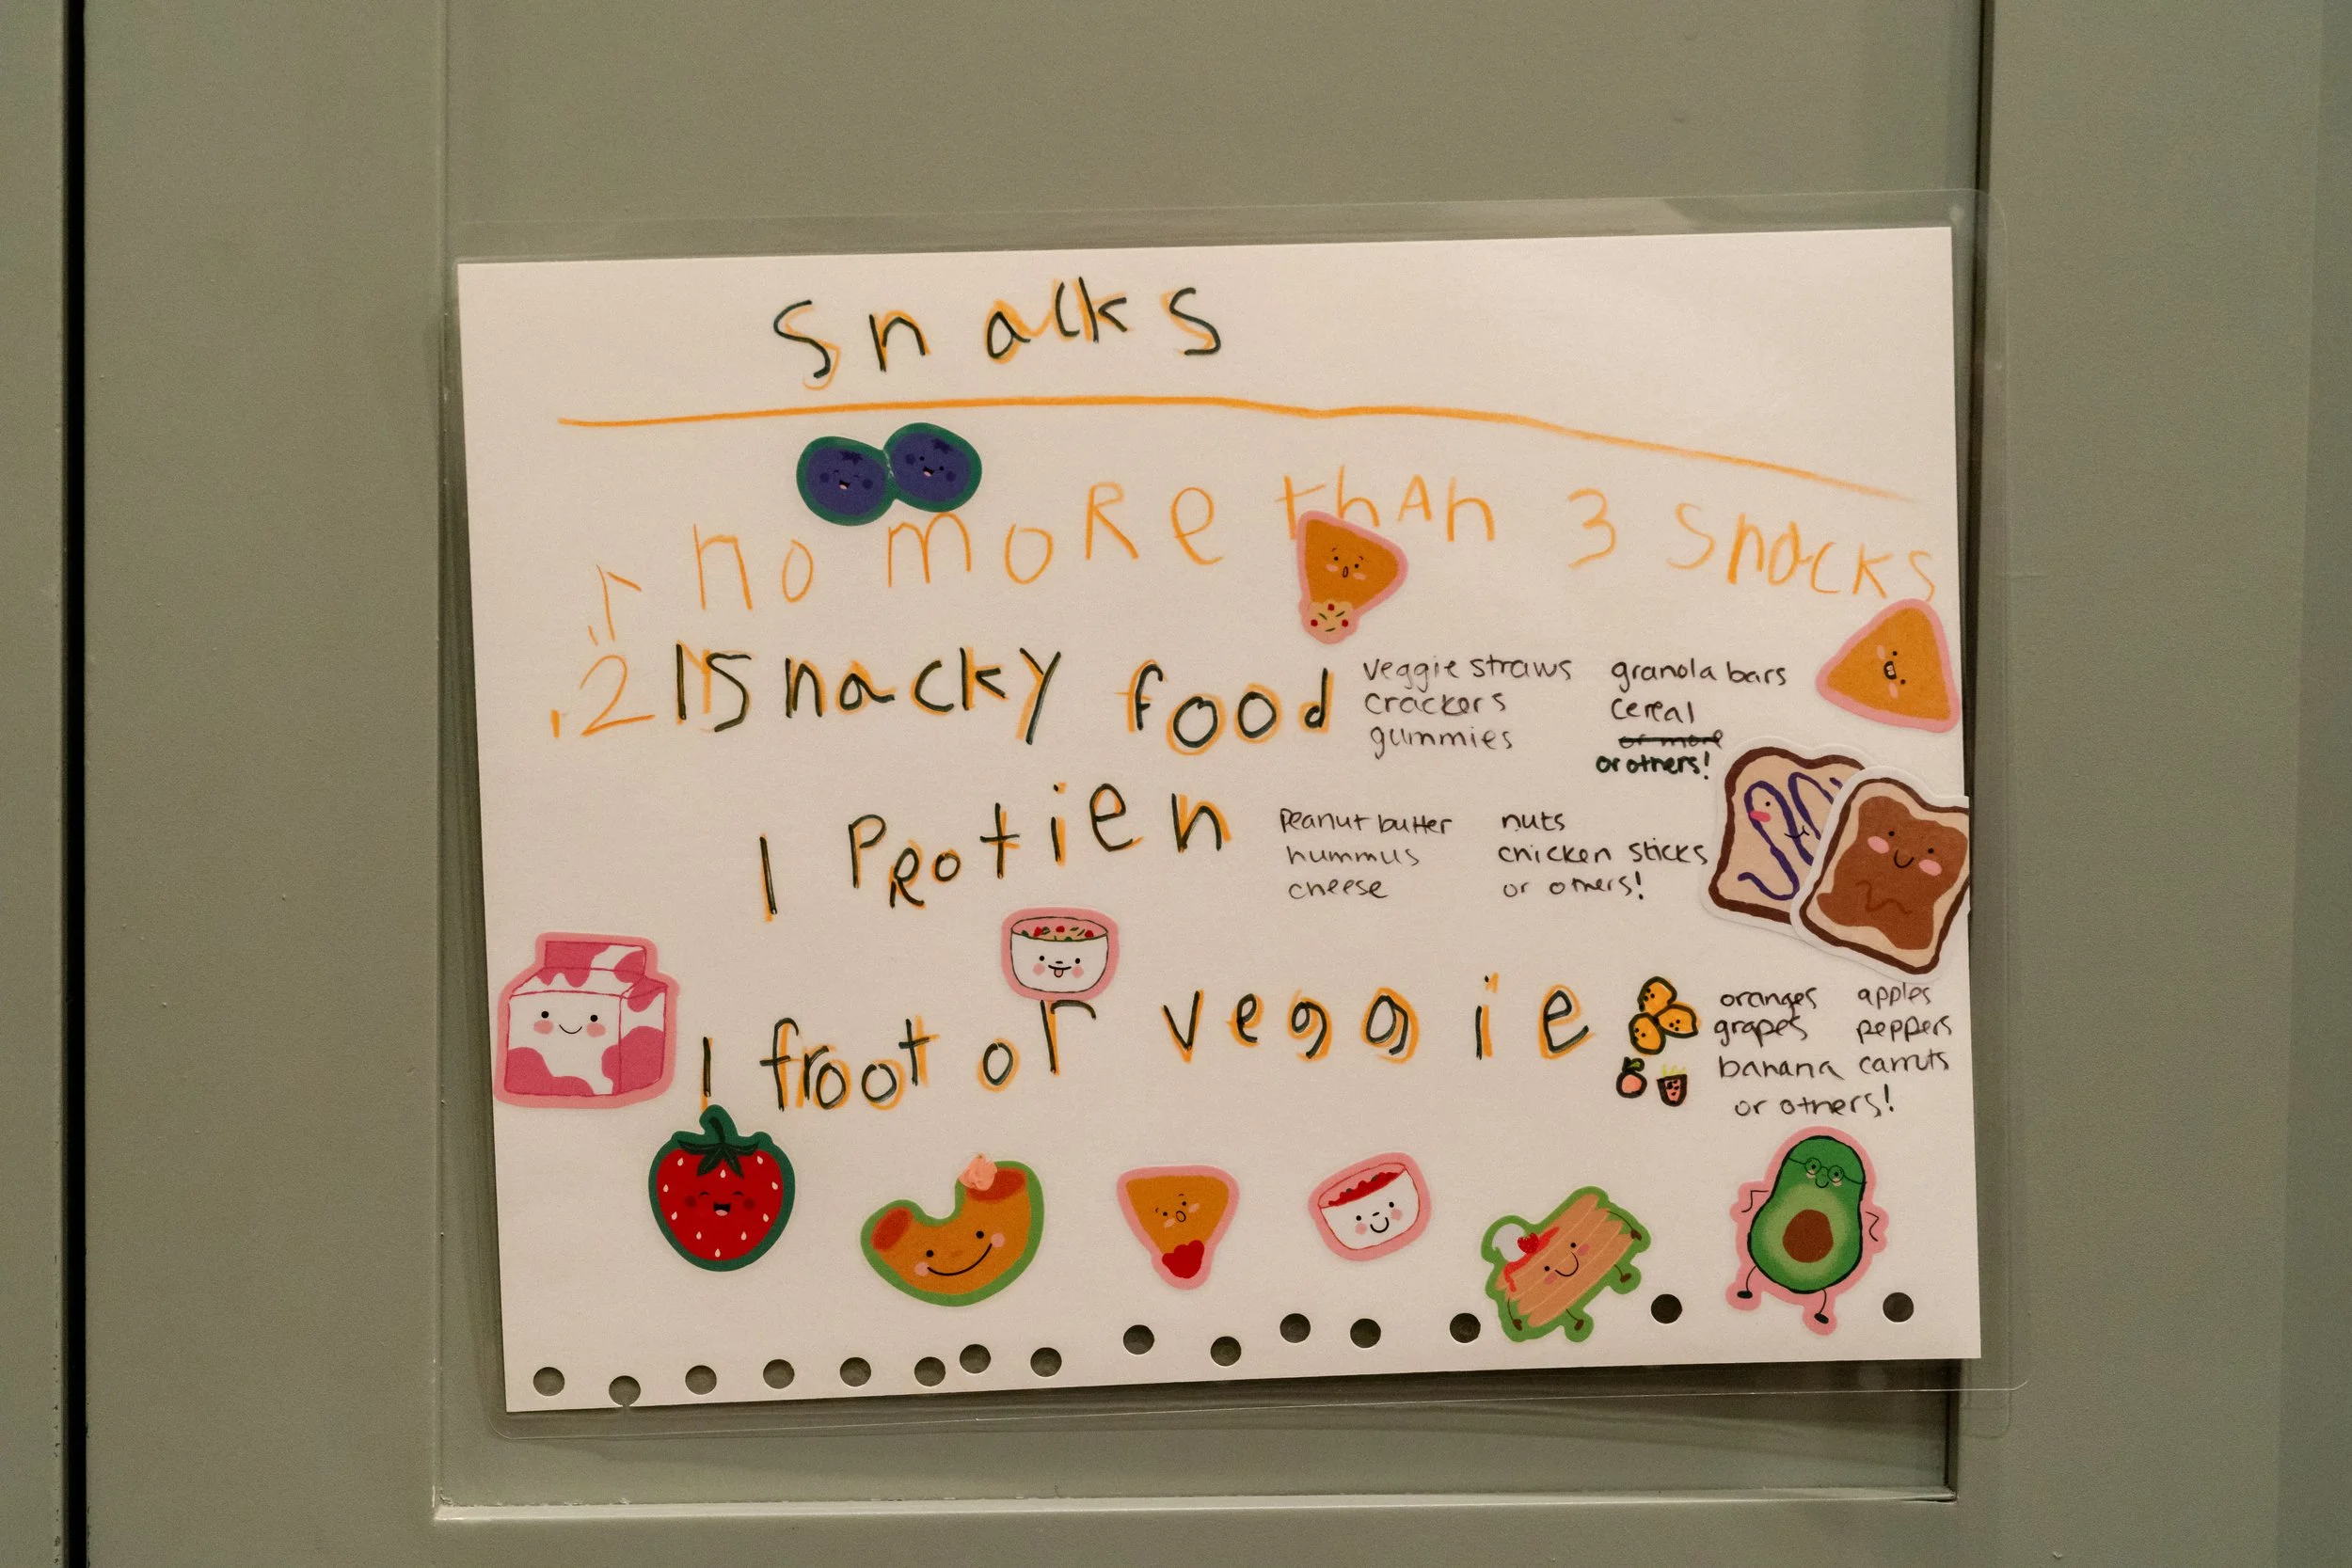 Snacks
1. no moRe thAn 3 snacks
2. 1 Snacky food
veggie straws granola bars
crackers cereal
gummies or more
or others!
1 PRotien
Peanut butter nuts
hummus chicken sticks
cheese or others!
1 froot or veggie
oranges apples
grapes peppers
banana carruts
or others!